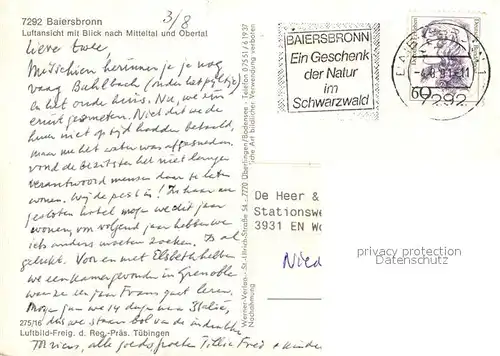 7292 Baiersbronn
Luftansicht mit Blick nach Mitteltal und Obertal
3/8
Misschien herinner je je nog
Bahlbach (onder
en het oude huis. Nu, we zijn
eruit gezet. Niet dat we de
huur niet op tijd hadden betaald,
maar het water was afgesneden
vond de bezitster het niet langer
verantwoord mensen daar te laten
wonen. Wij de pest in! In haar
gesloten hotel mogen we dit jaar
wonen, volgend jaar hebben we
iets anders moeten zoeken. Is al
gelukt. Voor en met Elsbeth hebben
we een kamer gevonden in Grenoble
waar ze een jaar Frans gaat leren.
Morgen gaan we 14 dagen naar Italië,
dus we staan bol van de indrukken
alle goeds groeten Tillie Fred + kinderen
275/16
Luftbild-Freig. d. Reg.-Präs. Tübingen
Werner-Verlag - St.-Ulrich-Straße 54 - 7770 Überlingen/Bodensee - Telefon 07551/61937
Nachahmung
Art bildlicher Verwendung verboten
BAIERSBRONN
Ein Geschenk
der Natur
im
Schwarzwald
7292
60
De Heer &
Stationswe
3931 EN Wo
privacy protection
Datenschutz